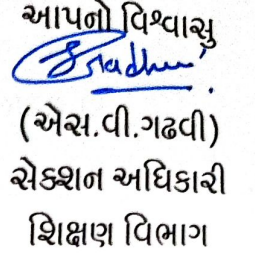 આપનો વિશ્વાસુ
(એસ.વી.ગઢવી)
સેક્શન અધિકારી
શિક્ષણ વિભાગ